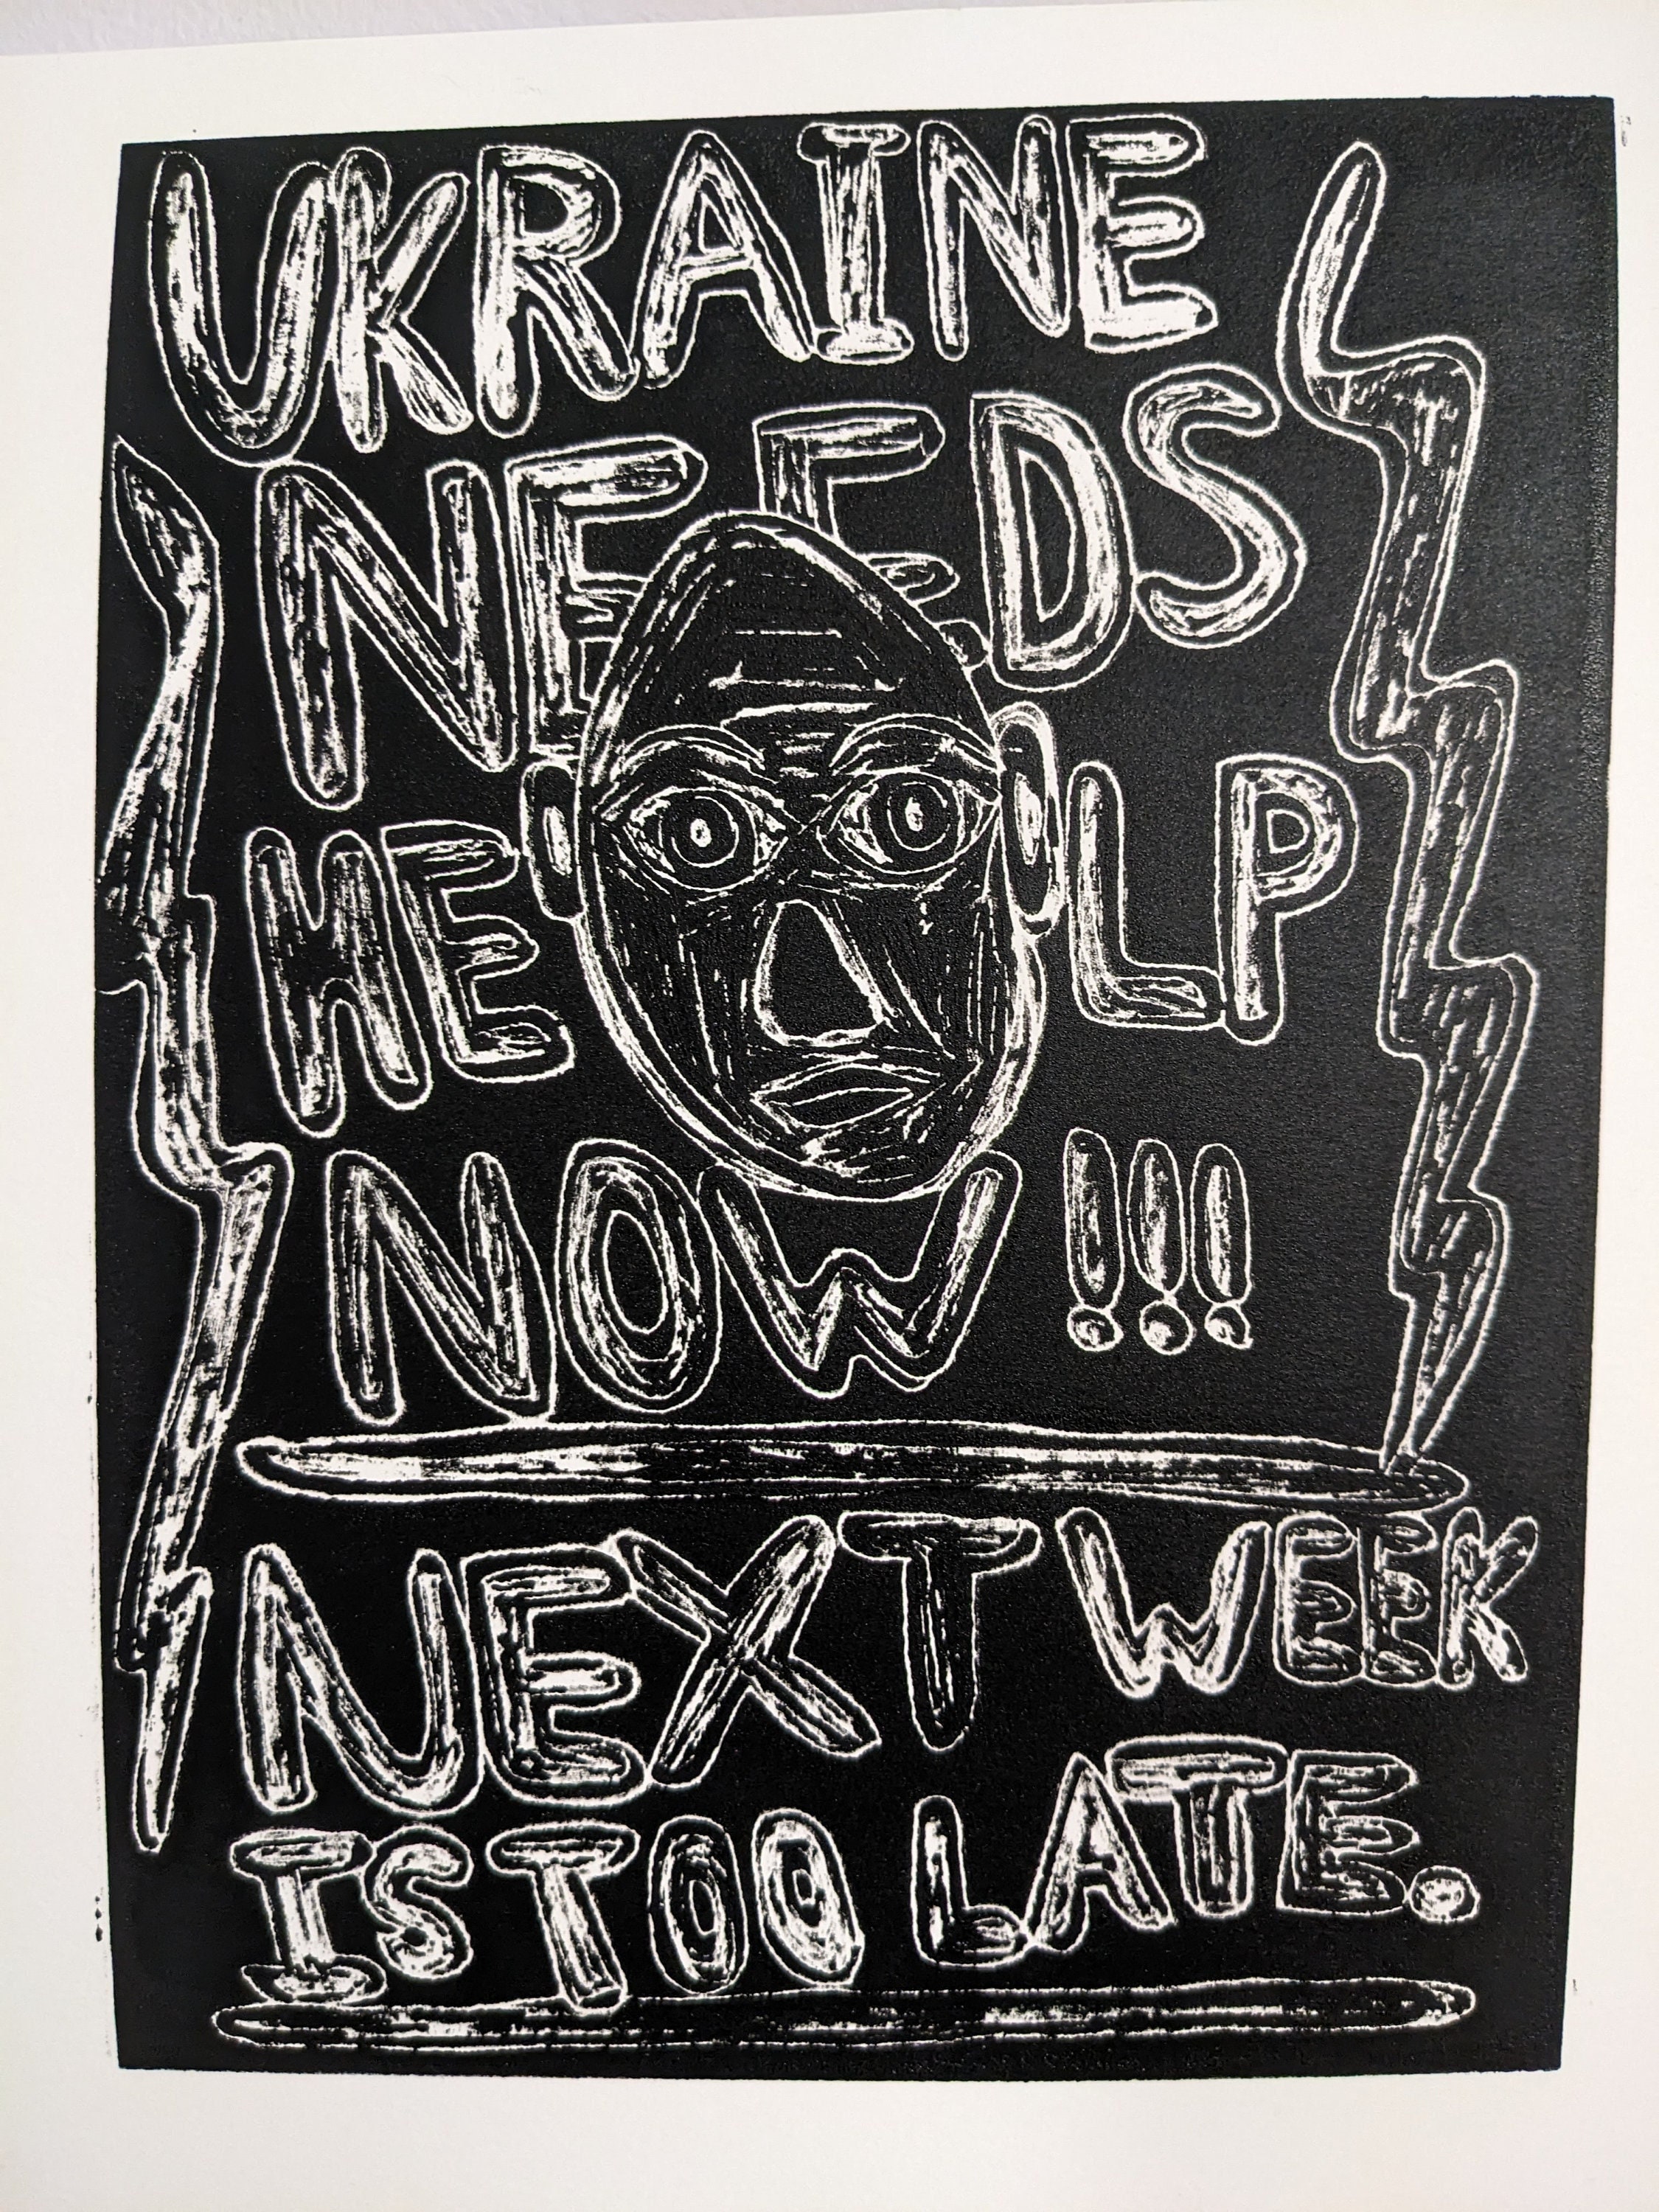 UKRAINE
NEEDS
HELP
NOW!!!
NEXT WEEK
IS TOO LATE.